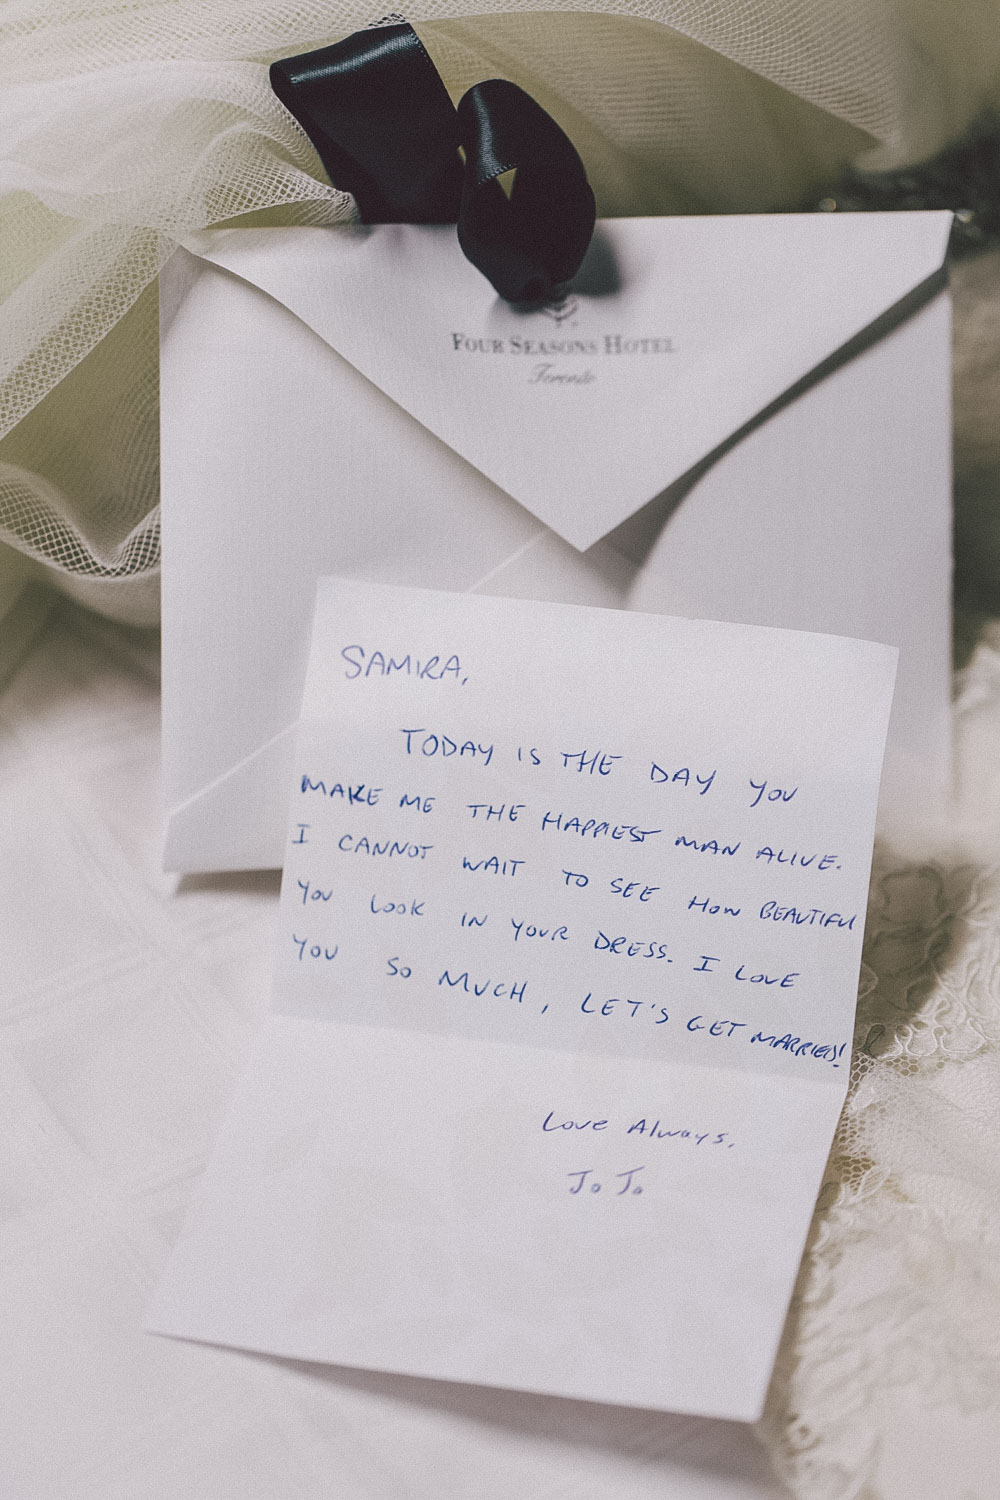 FOUR SEASONS HOTEL
Toronto
SAMIRA,
TODAY IS THE DAY YOU
MAKE ME THE HAPPIEST MAN ALIVE.
I CANNOT WAIT TO SEE HOW BEAUTIFUL
YOU LOOK IN YOUR DRESS. I LOVE
YOU SO MUCH, LET'S GET MARRIED!
Love Always,
JoJo